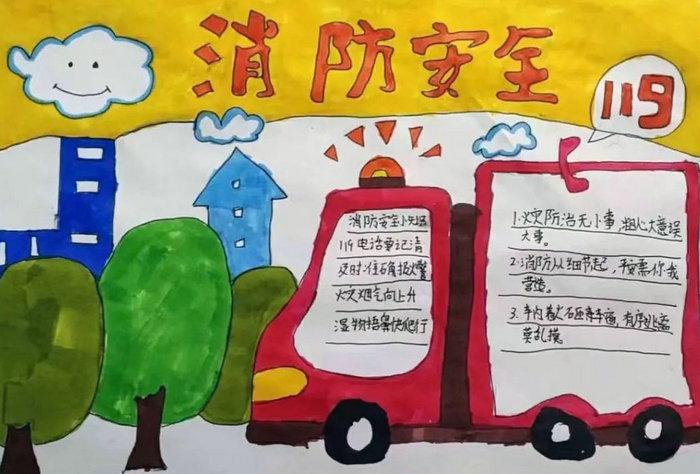 消防安全
119
消防安全小知识
119电话要记清
及时准确报火警
火灾烟气向上升
湿物捂鼻快爬行
1.火灾防治无小事,粗心大意误
大事。
2.消防从细节起,安需你我
营造。
3.车内着火砸车窗,有序逃离
莫乱摸。